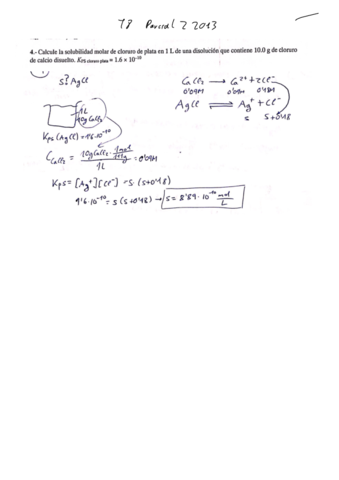 T8 Parcial 2 2013
4.- Calcule la solubilidad molar de cloruro de plata en 1 L de una disolución que contiene 10.0 g de cloruro
de calcio disuelto. Kps cloruro plata = 1.6 x 10⁻¹⁰
s? AgCl
1L
10g CaCl₂
Kps (AgCl) = 1'6·10⁻¹⁰
CaCl₂ → Ca²⁺ + 2Cl⁻
0'09M 0'09M 0'18M
AgCl ⇌ Ag⁺ + Cl⁻
s s+0'18
C CaCl₂ = 10g CaCl₂ · 1mol / 111g / 1L = 0'09M
Kps = [Ag⁺][Cl⁻] = s (s+0'18)
1'6·10⁻¹⁰ = s (s+0'18) → s = 8'89·10⁻¹⁰ mol/L